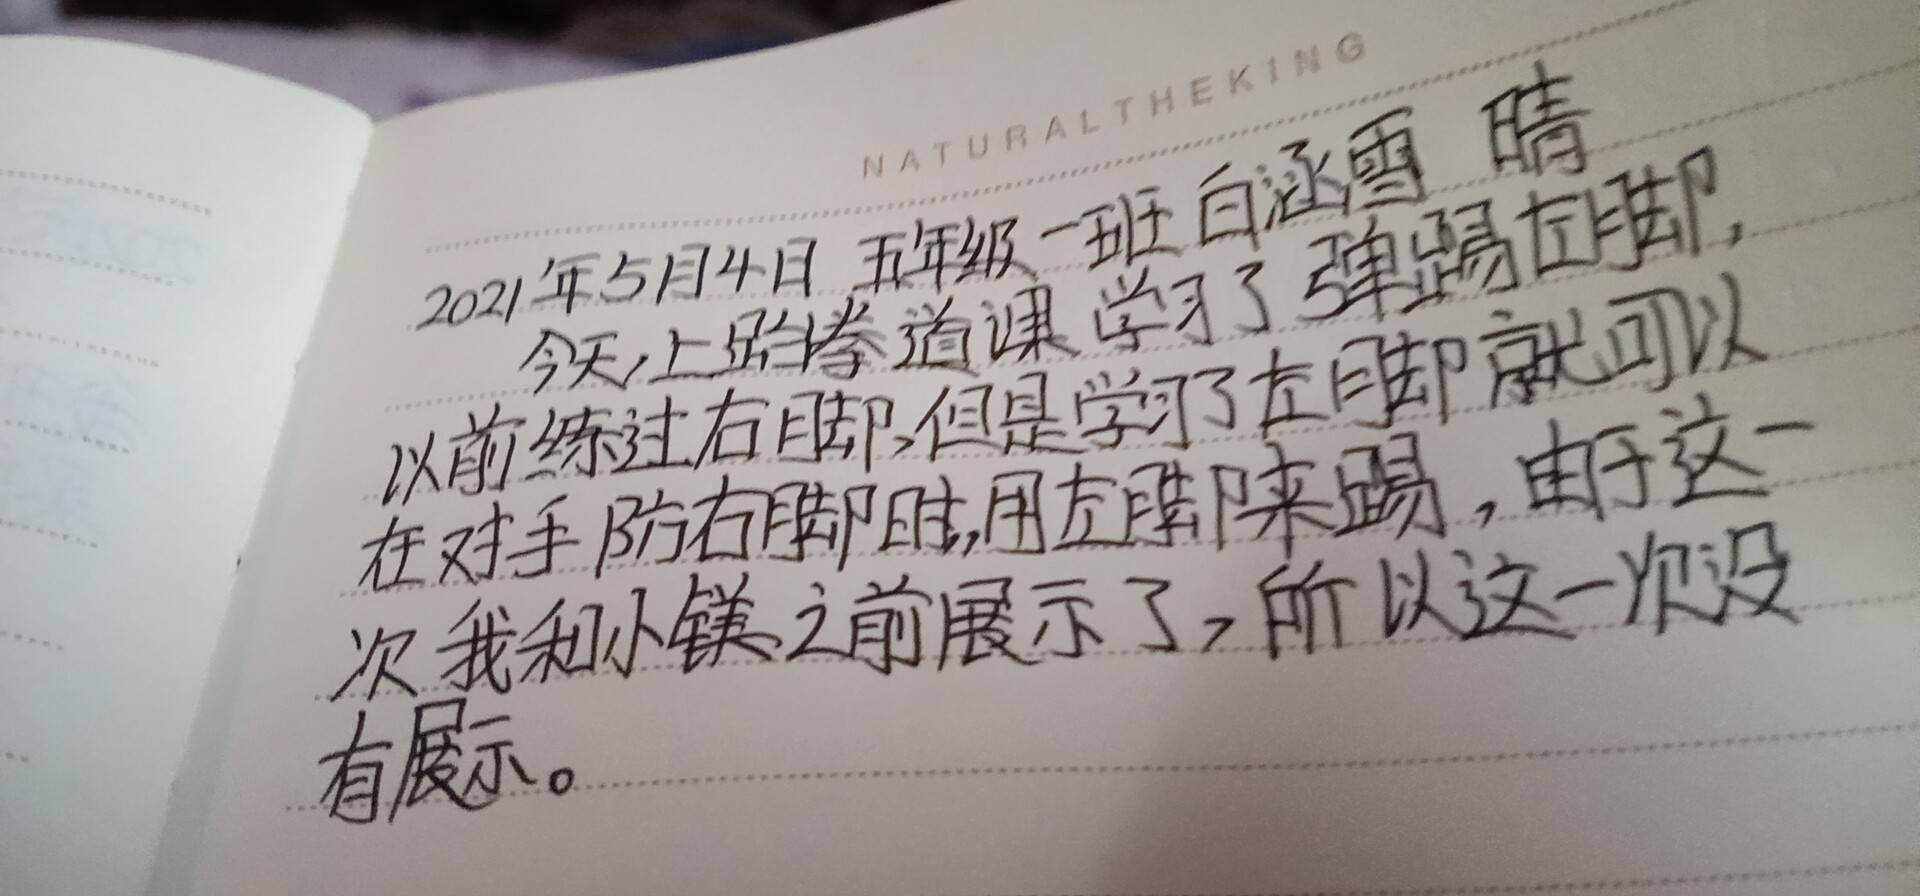 NATURALTHEKING
2021年5月4日 五年级一班 白涵雪 晴
今天,上跆拳道课 学习了弹踢左脚,
以前练过右脚,但是学习了左脚就可以
在对手防右脚时,用左脚来踢,由于这一
次我和小镁之前展示了,所以这一次没
有展示。